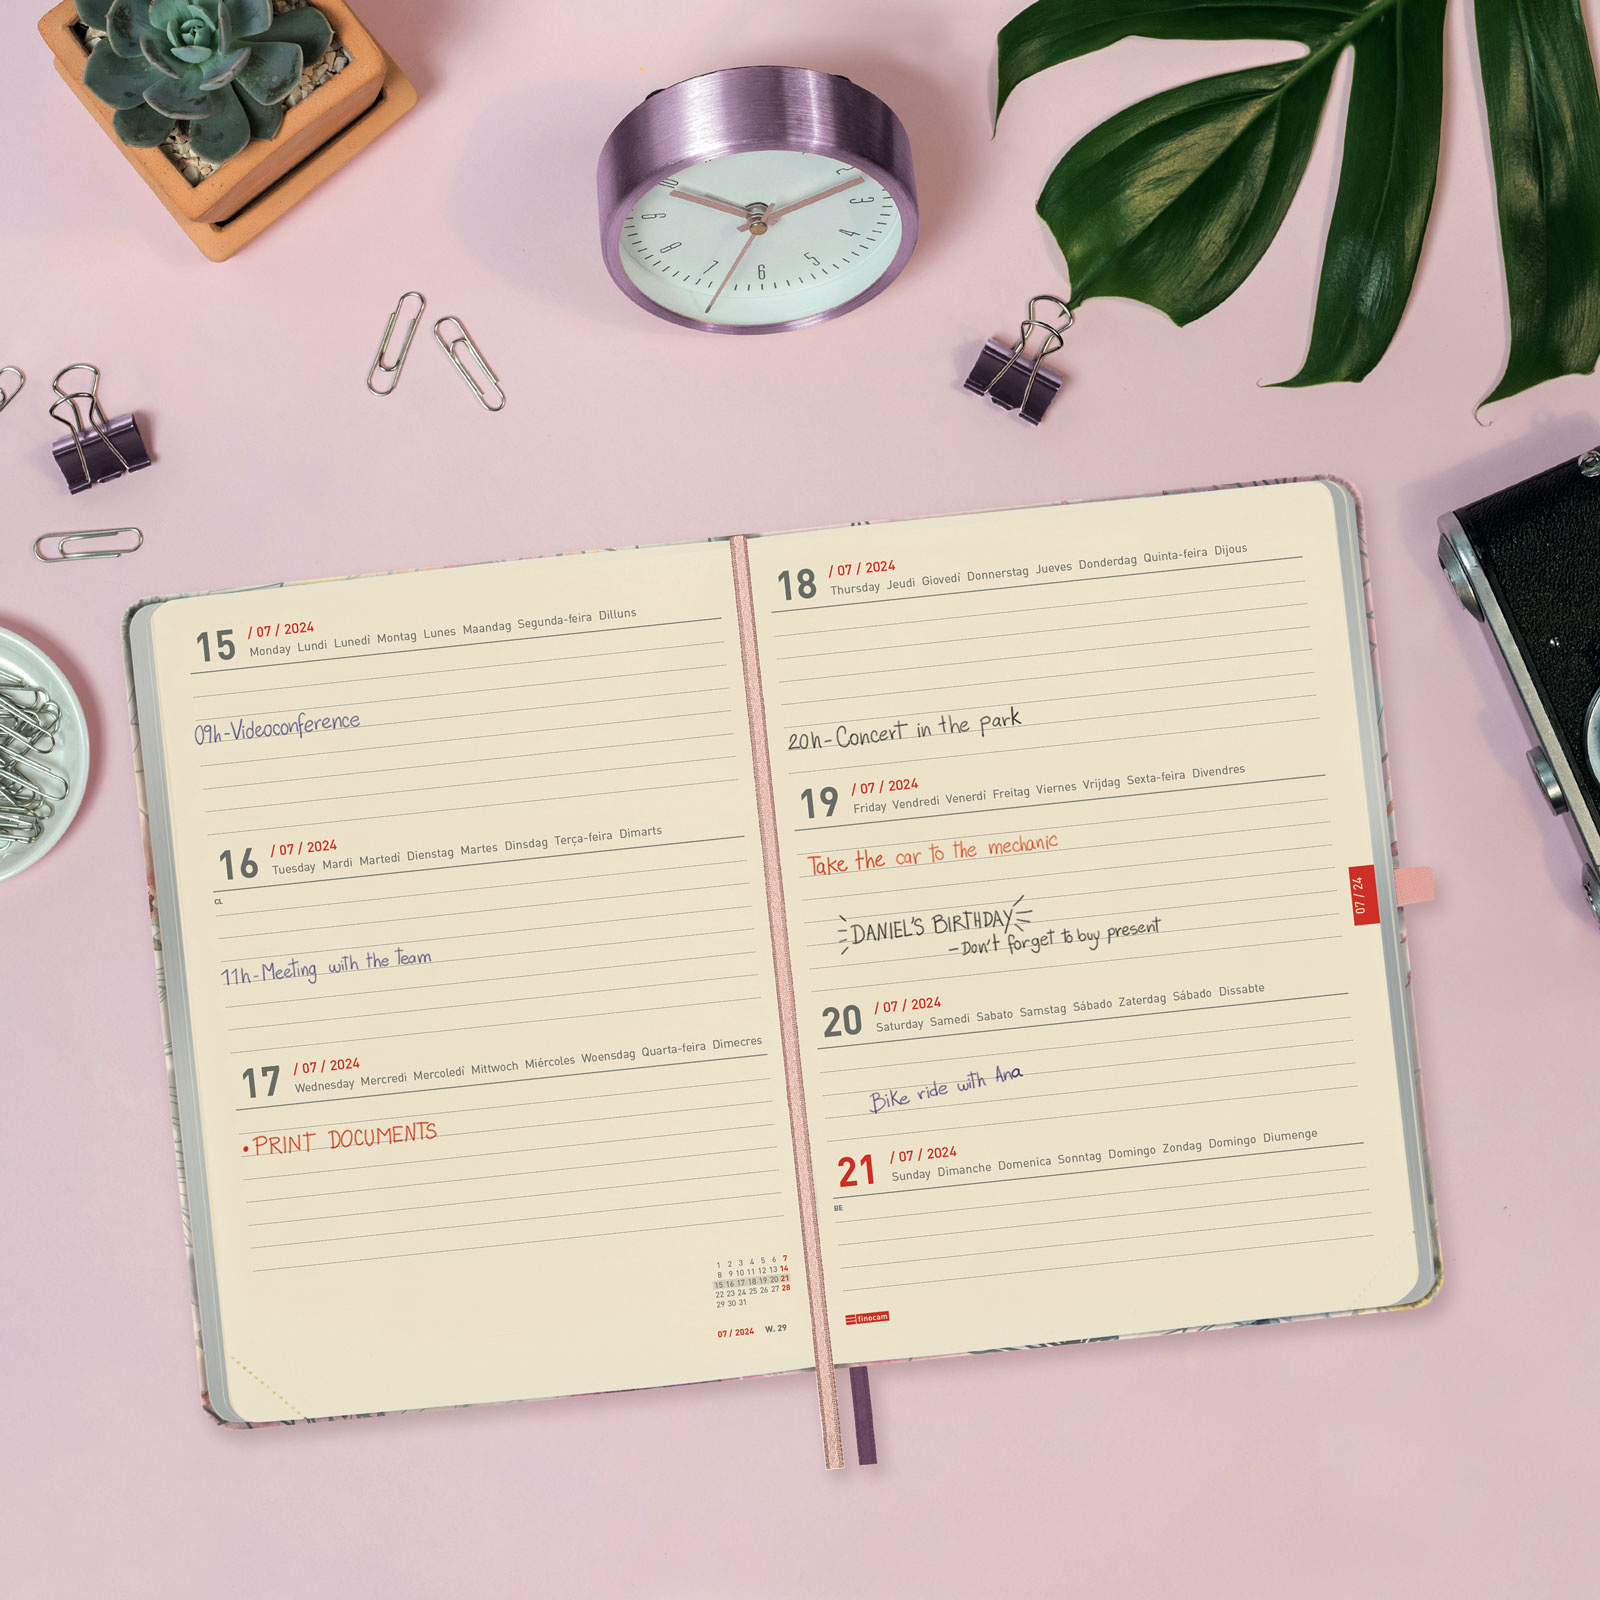 10
2
3
4
5
6
7
8
9
15 / 07 / 2024
Monday Lundi Lunedì Montag Lunes Maandag Segunda-feira Dilluns
09h-Videoconference
16 / 07 / 2024
Tuesday Mardi Martedì Dienstag Martes Dinsdag Terça-feira Dimarts
CL
11h-Meeting with the team
17 / 07 / 2024
Wednesday Mercredi Mercoledì Mittwoch Miércoles Woensdag Quarta-feira Dimecres
• PRINT DOCUMENTS
1 2 3 4 5 6 7
8 9 10 11 12 13 14
15 16 17 18 19 20 21
22 23 24 25 26 27 28
29 30 31
07 / 2024 W. 29
18 / 07 / 2024
Thursday Jeudi Giovedì Donnerstag Jueves Donderdag Quinta-feira Dijous
20h-Concert in the park
19 / 07 / 2024
Friday Vendredi Venerdì Freitag Viernes Vrijdag Sexta-feira Divendres
Take the car to the mechanic
DANIEL'S BIRTHDAY
-Don't forget to buy present
07 / 24
20 / 07 / 2024
Saturday Samedi Sabato Samstag Sábado Zaterdag Sábado Dissabte
Bike ride with Ana
21 / 07 / 2024
Sunday Dimanche Domenica Sonntag Domingo Zondag Domingo Diumenge
BE
finocam